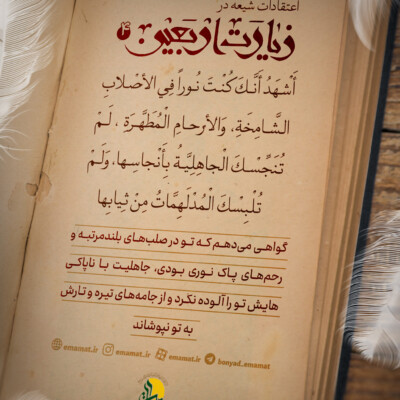 اعتقادات شیعه در
زیارت اربعین ۴
أَشْهَدُ أَنَّكَ كُنْتَ نُوراً فِي الأَصْلابِ
الشَّامِخَةِ، وَالأَرحامِ المُطَهَّرَةِ ، لَمْ
تُنَجِّسْكَ الْجاهِلِيَّةُ بِأَنْجاسِها، وَلَمْ
تُلبِسْكَ الْمُدْلَهِمَّاتُ مِنْ ثِيابِها
گواهی می‌دهم که تو در صلب‌های بلندمرتبه و
رحم‌های پاک نوری بودی، جاهلیت با ناپاکی
هایش تو را آلوده نکرد و از جامه‌های تیره و تارش
به تو نپوشاند
emamat.ir emamat.ir emamat_ir bonyad_emamat